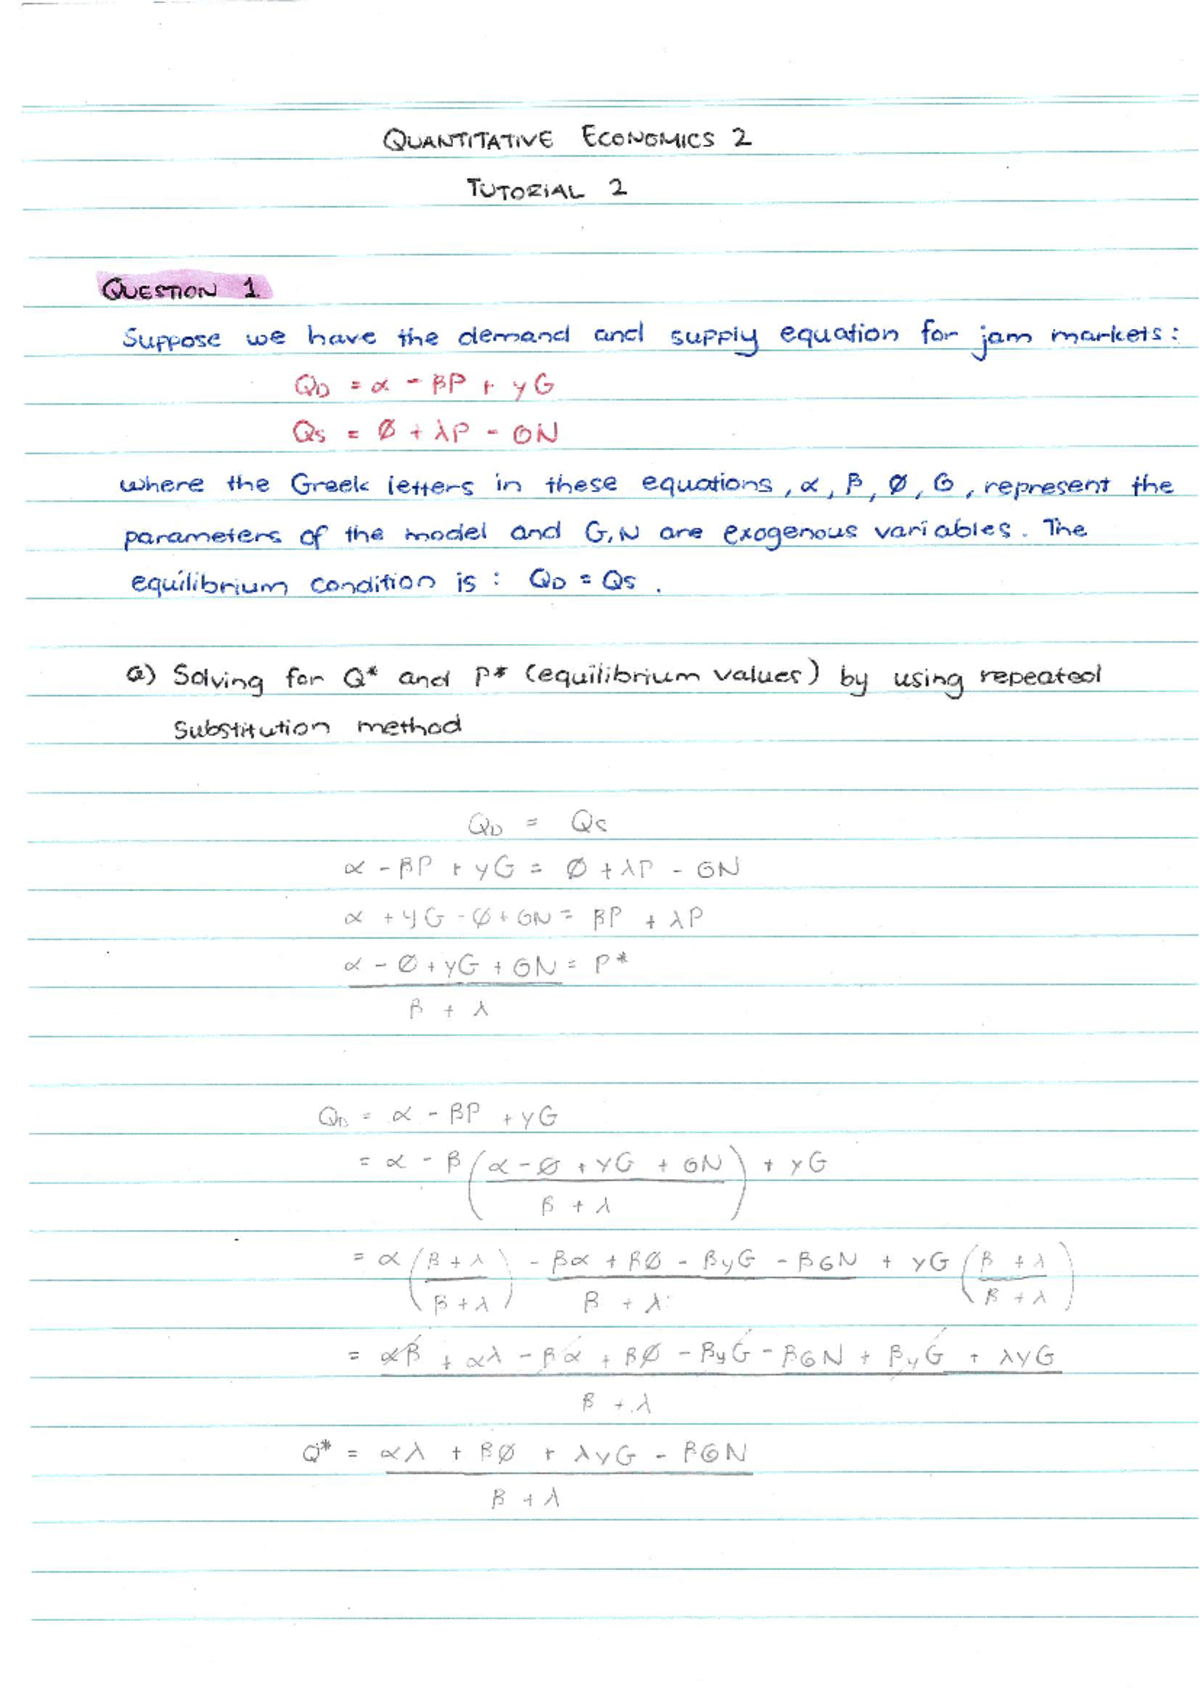 QUANTITATIVE ECONOMICS 2
TUTORIAL 2
QUESTION 1.
Suppose we have the demand and supply equation for jam markets:
QD = α - βP + γG
QS = Ø + λP - ΘN
where the Greek letters in these equations, α, β, Ø, Θ, represent the
parameters of the model and G,N are exogenous variables. The
equilibrium condition is: QD = QS.
a) Solving for Q* and P* (equilibrium values) by using repeated
substitution method
QD = QS
α - βP + γG = Ø + λP - ΘN
α + γG - Ø + ΘN = βP + λP
α - Ø + γG + ΘN = P*
β + λ
QD = α - βP + γG
= α - β(α - Ø + γG + ΘN) + γG
β + λ
= α(β + λ) - βα + βØ - βγG - βΘN + γG(β + λ)
(β + λ) β + λ (β + λ)
= αβ + αλ - βα + βØ - βγG - βΘN + βγG + λγG
β + λ
Q* = αλ + βØ + λγG - βΘN
β + λ